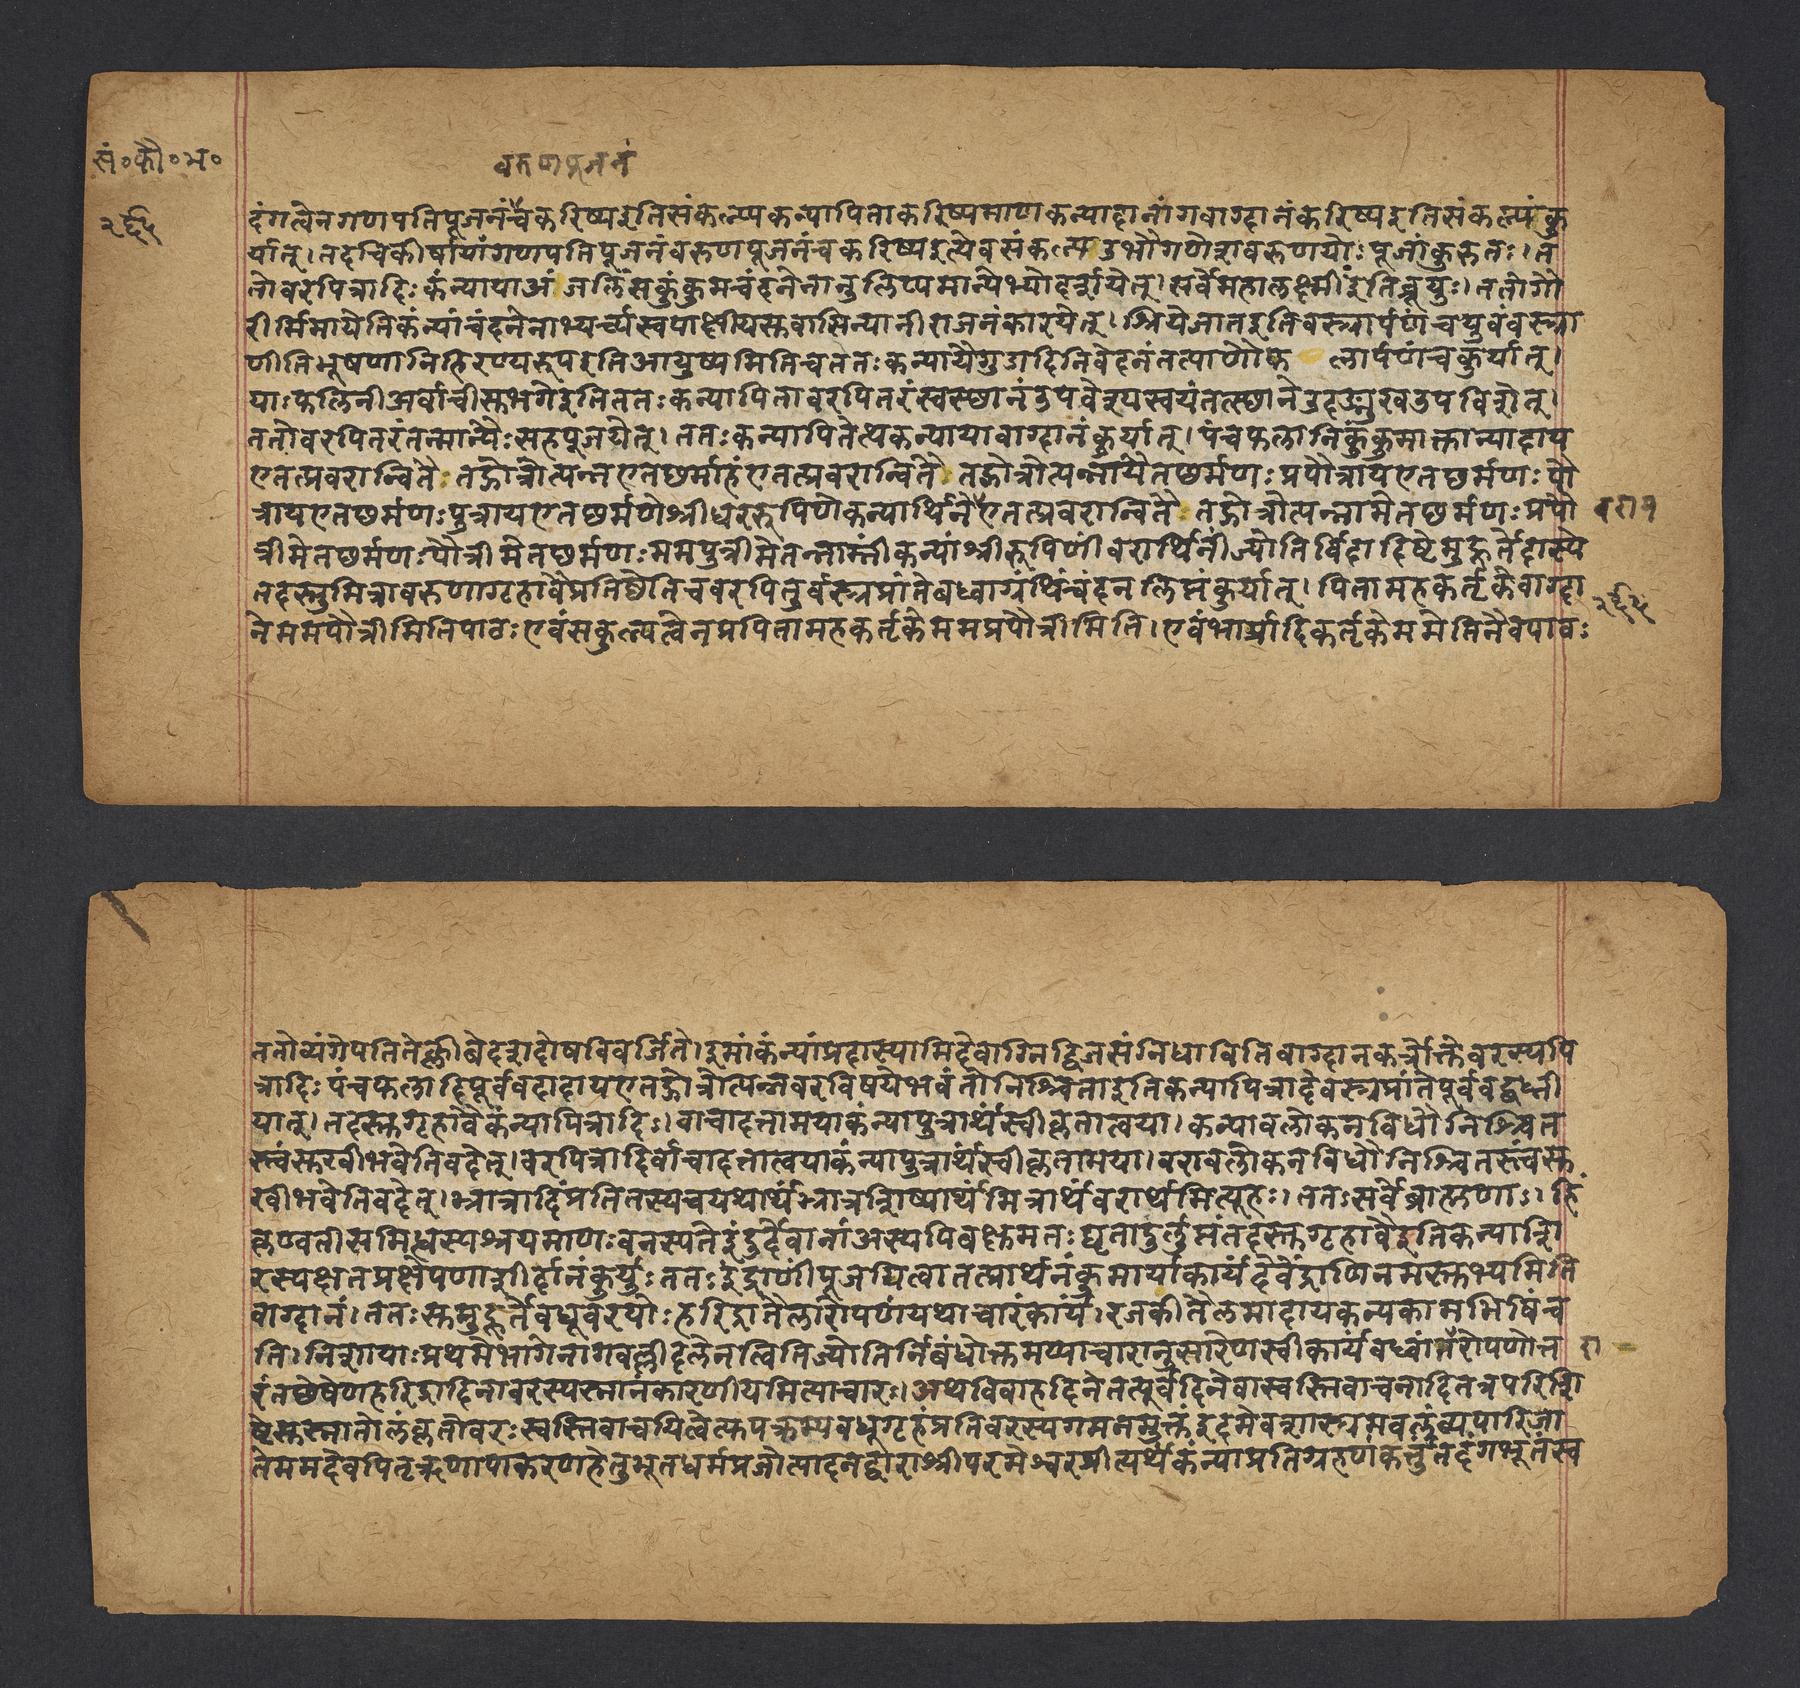 सं॰कौ॰भ॰
वरुणपूजनं
२६५
दंगत्वेनगणपतिपूजनंचकरिष्यइतिसंकल्प्यकन्यापिताकरिष्यमाणकन्यादानांगवाग्दानंकरिष्यइतिसंकल्पंकु
र्यात्।तदचिकीर्षायांगणपतिपूजनंवरुणपूजनंचकरिष्यइत्येवसंकल्प्यउभौगणेशवरुणयोःपूजांकुरुतः।त
तोवरपित्रादिःकंन्यायाअंजलिंसकुंकुमचंदनेनानुलिप्यमान्येभ्योदर्शयेत्।सर्वेमहालक्ष्मीरितिब्रूयुः।ततोगौ
रीर्मिमायेतिकंन्यांचंदनेनाभ्यर्च्यस्वपाक्षीयसुवासिन्यानीराजनंकारयेत्।श्रियेजातइतिवस्त्रार्पणंचयुवंवस्त्रा
णीतिभूषणानिहिरण्यरूपइतिआयुष्यमितिचततःकन्यायैगुडादिनिवेदनंतत्पाणौफलार्पणंचकुर्यात्।
याःफलिनीअर्वाचीसुभगेइतिततःकन्यापितावरपितरंस्वस्छानंउपवेश्यस्वयंतत्स्छानेउदङ्मुखउपविशेत्।
ततोवरपितरंतन्मान्यैःसहपूजयेत्।ततःकन्यापितेत्थकन्यायावाग्दानंकुर्यात्।पंचफलानिकुंकुमाक्तान्यादाय
एतत्प्रवरान्वितैतद्गोत्रोत्पन्नएतछर्माहंएतत्प्रवरान्वितैतद्गोत्रोत्पन्नायैतछर्मणःप्रपौत्रायएतछर्मणःपौ
त्रायएतछर्मणःपुत्रायएतछर्मणेश्रीधररूपिणेकन्यार्थिनेएतत्प्रवरान्वितैतद्गोत्रोत्पन्नामेतछर्मणःप्रपौ
त्रीमेतछर्मणःपौत्रीमेतछर्मणःममपुत्रीमेतन्नाम्नींकन्यांश्रीरूपिणींवरार्थिनींज्योतिर्विदादिष्टेमुहूर्तेदास्ये
तदस्तुमित्रावरुणागृहावैप्रतिष्ठेतिचवरपितुर्वस्त्रप्रांतेबध्वाग्रंथिंचंदनलिप्तंकुर्यात्।पितामहकर्तृकेवाग्दा
२६५
नेममपौत्रीमितिपाठःएवंसकुल्पत्वेनप्रपितामहकर्तृकेममप्रपौत्रीमिति।एवंभार्यादिकर्तृकेममेतिनैवपाठः
ततोव्यंगेपतितेक्लीबेदशदोषविवर्जिते।इमांकंन्यांप्रदास्यामिदेवाग्निद्विजसंनिधावितिवाग्दानकर्त्रोक्तेवरस्यपि
त्रादिःपंचफलादिपूर्ववदादायएतद्गोत्रोत्पन्नवरविषयेभवंतोनिश्चिताइतिकन्यापित्रादेवस्त्रप्रांतेपूर्ववद्बध्नी
यात्।तदस्तगृहावैकंन्यापित्रादिः।वाचादत्तामयाकंन्यापुत्रार्थंस्वीकृतात्वया।कन्यावलोकनविधौनिश्चित
स्त्वंसुखीभवेतिवदेत्।वरपित्रादिर्वाचादत्तात्वयाकंन्यापुत्रार्थंस्वीकृतामया।वरावलोकनविधौनिश्चितस्त्वंसु
खीभवेतिवदेत्।भ्रात्रादिंप्रतितस्यचयथार्थंभ्रात्रर्थंशिष्यार्थमित्रार्थंवरार्थमित्यूहः।ततःसर्वेब्राह्मणाः।
वाग्दानं।ततःसुमुहूर्तेवधूवरयोःहरिद्रातैलारोपणंयथाचारंकार्यं।रजकीतैलमादायकन्यकामभिषिंच
ति।निशायाःप्रथमेभागेनागवल्लीदलेनत्वितिज्योतिर्निबंधोक्तमप्याचारानुसारेणस्वीकार्यंवध्वांतैरोपणोत्त
रंतछेषेणहरिद्रादिनावरस्यस्नानंकारणीयमित्याचारः।अथविवाहदिनेतत्पूर्वेदिनेवास्वस्तिवाचनादितत्रपरिशि
ष्टेसुस्नातोलंकृतोवरःस्वस्तिवाचयित्वेत्युपक्रम्यवधूगृहंप्रतिवरस्यगमनमुक्तंइदमेवशास्त्रमवलंब्यपारिजा
तेममदैवपितृऋणापाकरणहेतुभूतधर्मप्रजोत्पादनद्वाराश्रीपरमेश्वरप्रीत्यर्थंकंन्याप्रतिग्रहणंकर्तुंतदंगभूतंस्व